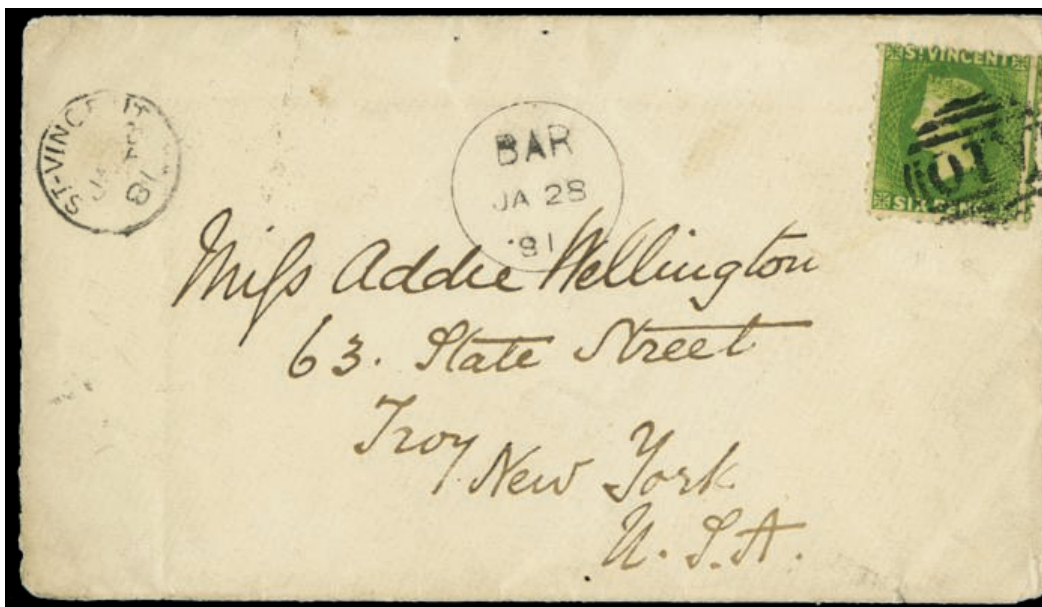 ST-VINCENT
JA
81
BAR
JA 28
'81
ST. VINCENT
SIX
Miss Addie Wellington
63. State Street
Troy
New York
U.S.A.